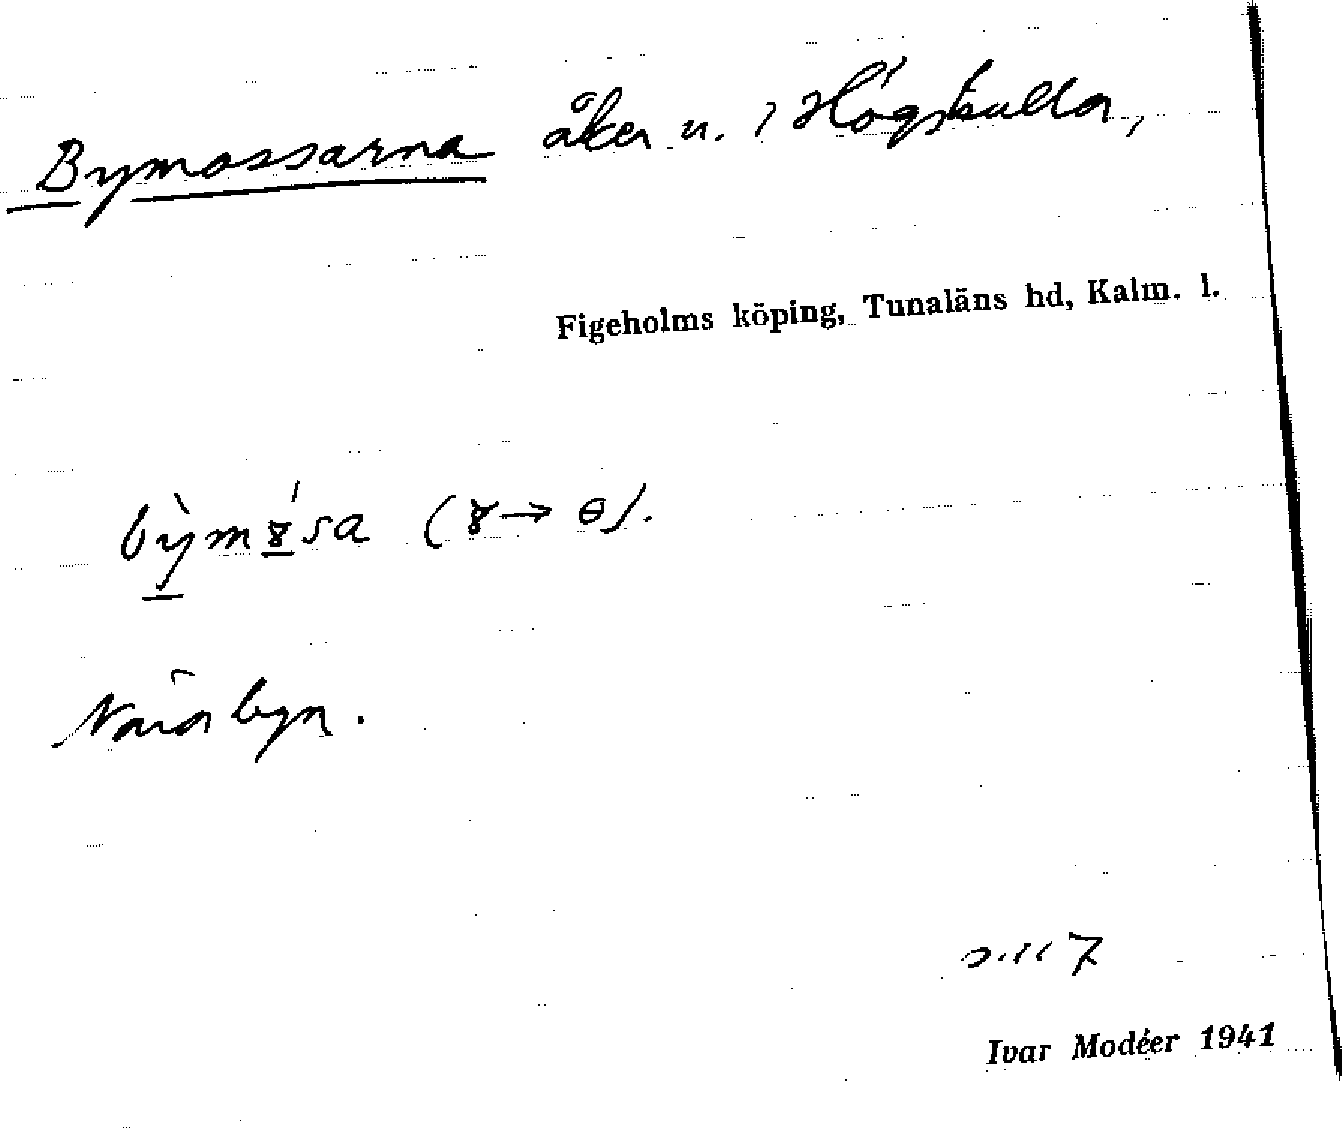 Bymossarna åker u. i Högskulla,
Figeholms köping, Tunaläns hd, Kalm. l.
bỳmɤ́sa (ɤ → ɵ).
Nära byn.
7
Ivar Modéer 1941